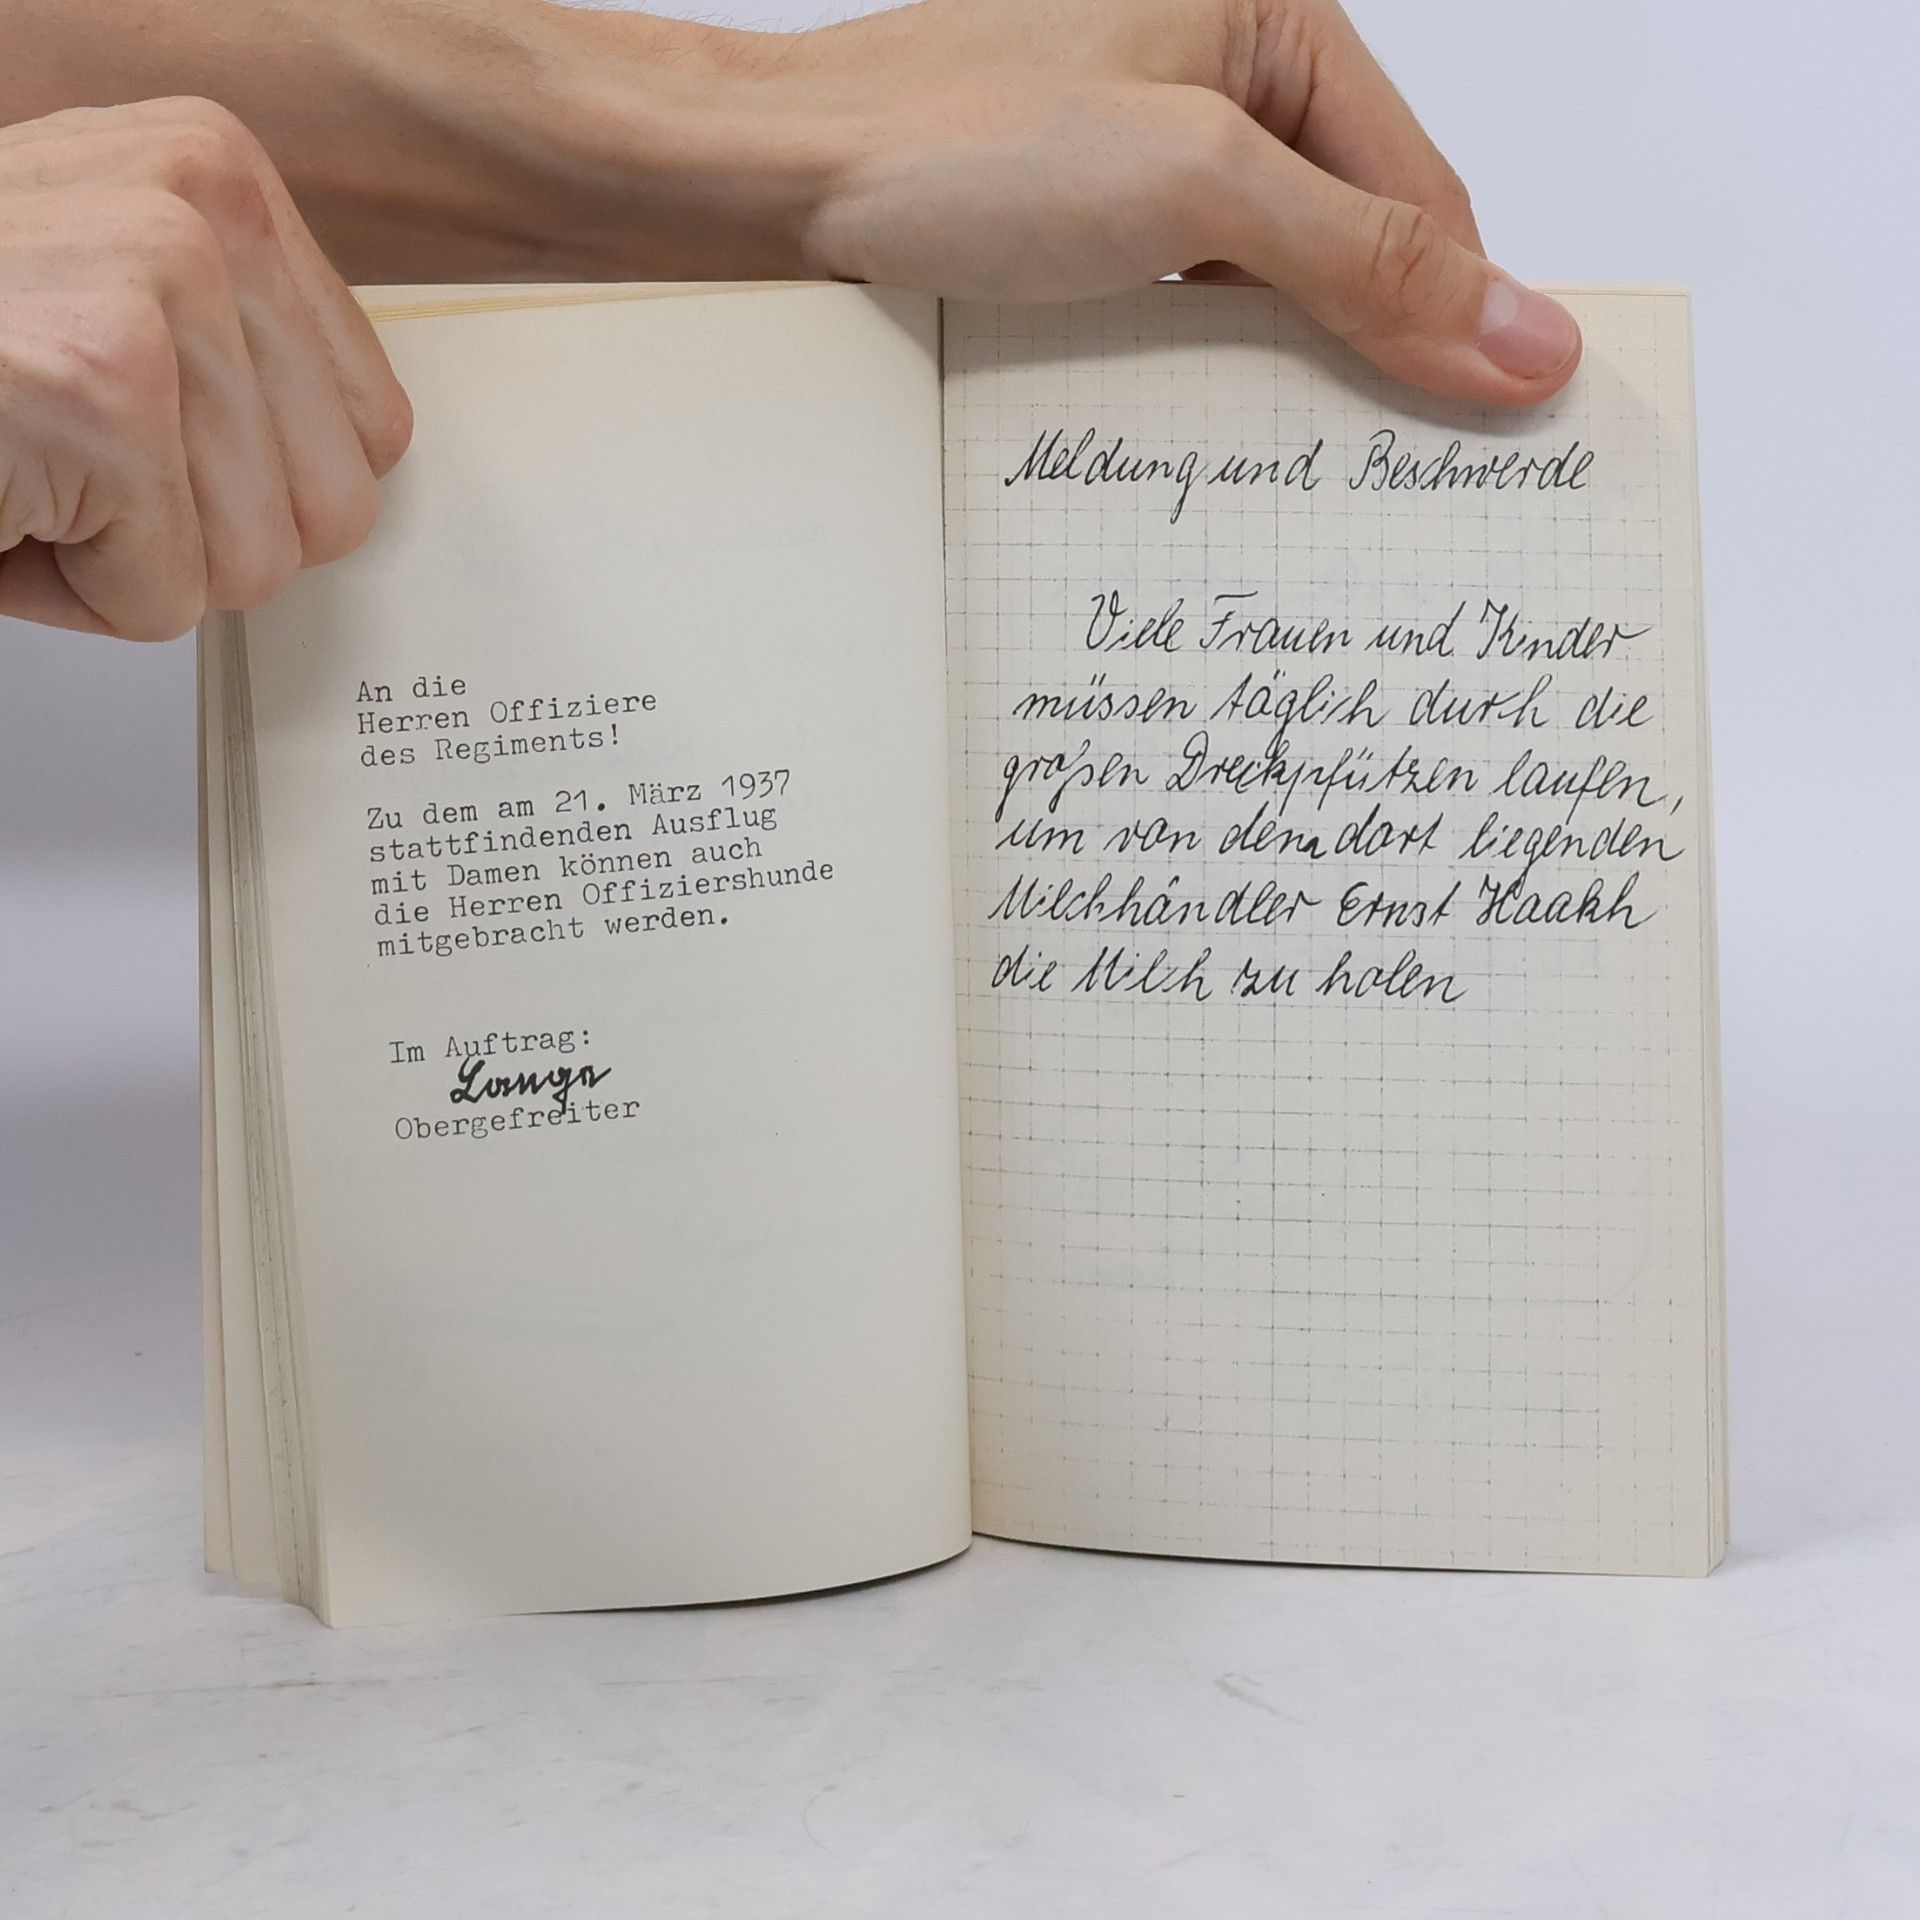 An die
Herren Offiziere
des Regiments!
Zu dem am 21. März 1937
stattfindenden Ausflug
mit Damen können auch
die Herren Offiziershunde
mitgebracht werden.
Im Auftrag:
Lange
Obergefreiter
Meldung und Beschwerde
Viele Frauen und Kinder
müssen täglich durch die
großen Dreckpfützen laufen,
um von dem dort liegenden
Milchhändler Ernst Haakh
die Milch zu holen